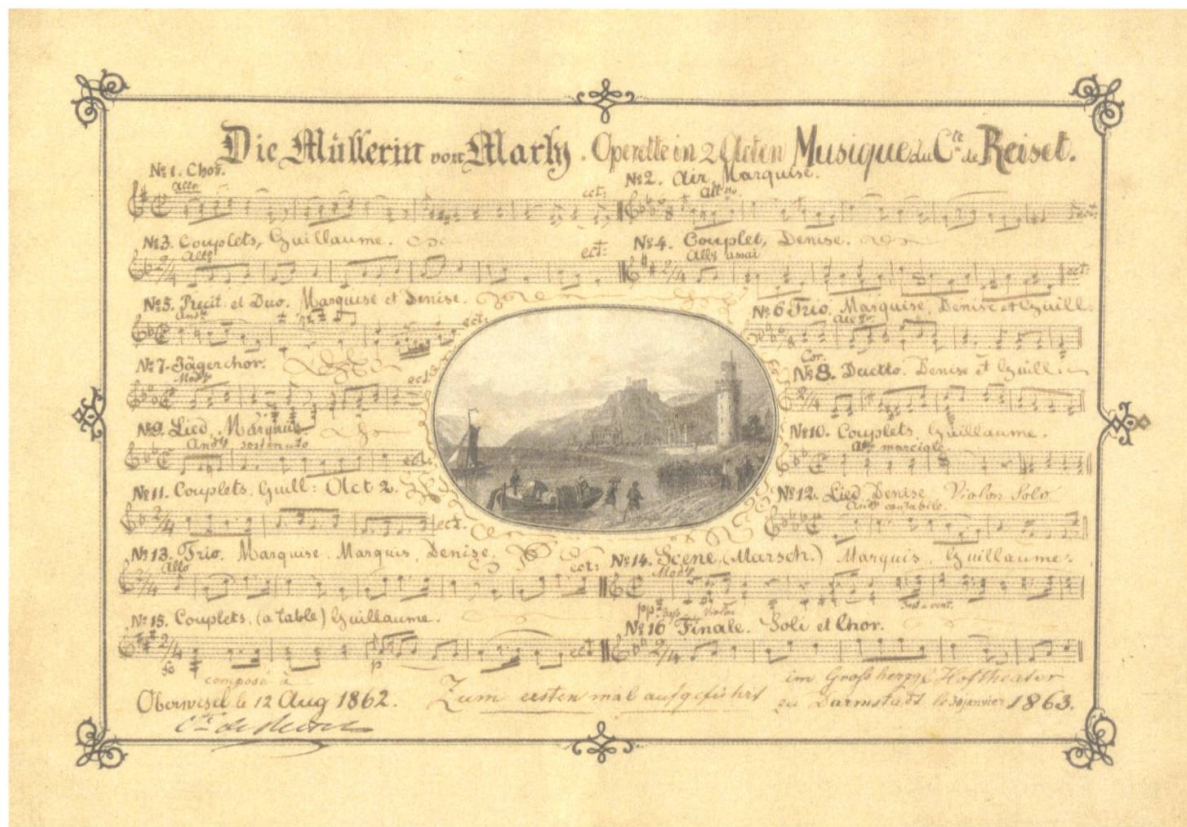 Die Müllerin von Marly. Operette in 2 Acten Musique du Cte de Reiset.
No 1. Chor.
Allo
ect:
No 2. Air Marquise.
No 3. Couplets, Guillaume.
ect:
No 4. Couplet, Denise.
Allo assai
ect:
No 5. Recit. et Duo. Marquise et Denise.
ect:
No 6 Trio. Marquise, Denise et Guill.
No 7. Jägerchor.
Modto
ect:
Cor.
No 8. Duetto. Denise et Guill:
No 9. Lied. Marquise.
Andte sostenuto
No 10. Couplets. Guillaume.
Allo marciale
No 11. Couplets. Guill: Act 2.
ect.
No 12. Lied. Denise Violon Solo
Andte cantabile.
No 13. Trio. Marquise. Marquis. Denise.
Allo
ect:
No 14. Scene (Marsch.) Marquis. Guillaume.
Modto
pp
No 15. Couplets. (a table) Guillaume.
No 16 Finale. Soli et Chor.
p
composé à
Oberwesel le 12 Aug 1862.
Zum ersten mal aufgeführt
im Großherzl Hoftheater
zu Darmstadt le 30 janvier 1863.